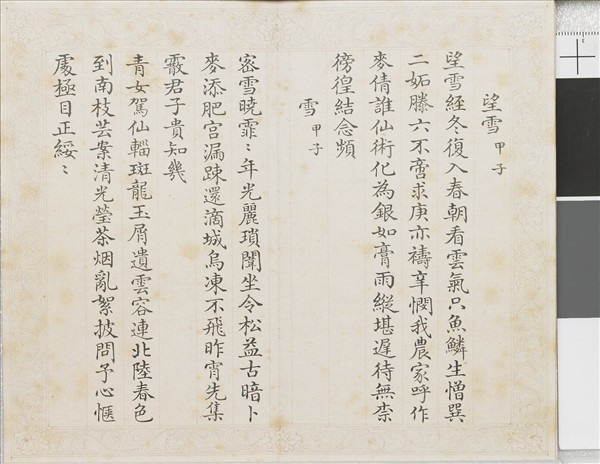 望雪 甲子
望雪經冬復入春朝看雲氣只魚鱗生憎巽
二妬滕六不啻求庚亦禱辛憫我農家呼作
麥倩誰仙術化為銀如膏雨縱堪遲待無柰
徬徨結念頻
雪 甲子
密雪曉霏〻年光麗瑣闈坐令松益古暗卜
麥添肥宮漏踈還滴城烏凍不飛昨宵先集
霰君子貴知幾
青女駕仙輜斑龍玉屑遺雲容連北陸春色
到南枝芸案清光瑩茶烟亂絮披問予心愜
處極目正綏〻